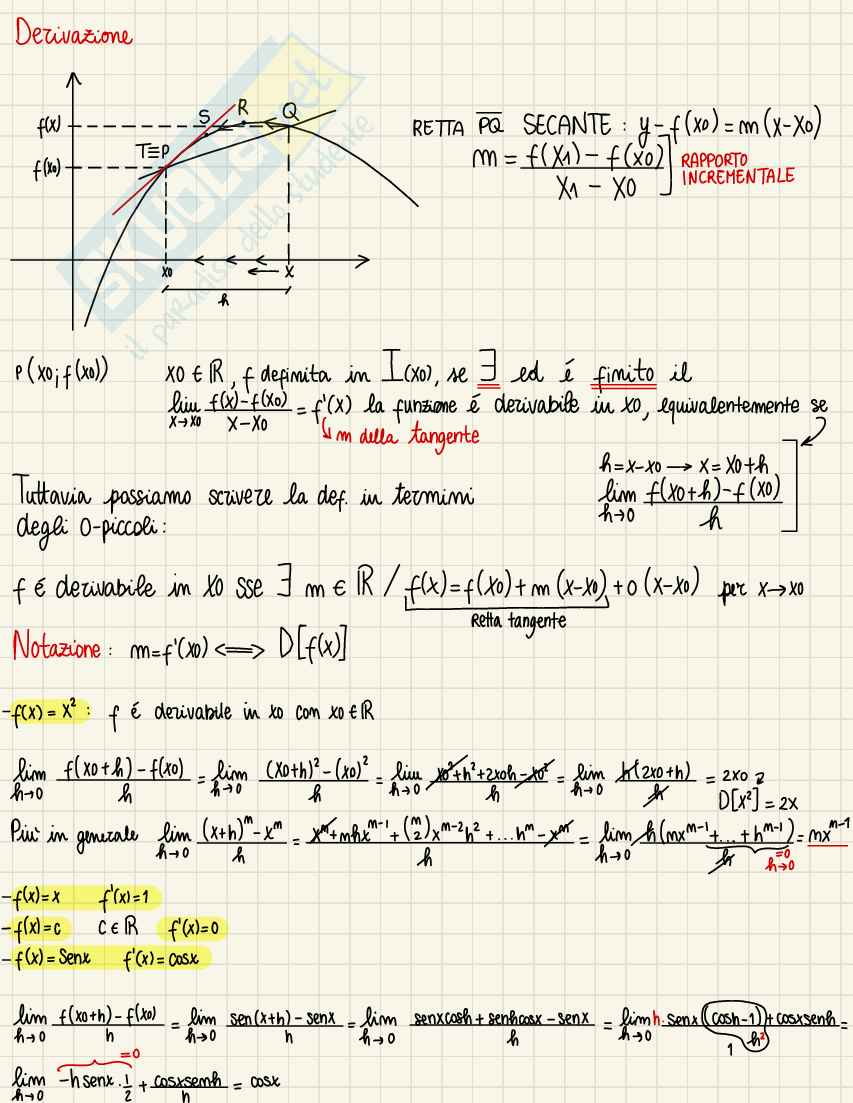 Derivazione
f(x)
f(x0)
T≡P
S
R
Q
x0
x
h
RETTA PQ SECANTE : y-f(x0)=m(x-x0)
m = f(x1)-f(x0) / x1-x0
RAPPORTO INCREMENTALE
SKUOLA.net
il paradiso dello studente
P(x0; f(x0)) x0 ∈ ℝ, f definita in I(x0), se ∃ ed é finito il
lim x→x0 f(x)-f(x0) / x-x0 = f'(x) la funzione é derivabile in x0, equivalentemente se
m della tangente
h=x-x0 → x=x0+h
lim h→0 f(x0+h)-f(x0) / h
Tuttavia possiamo scrivere la def. in termini
degli o-piccoli:
f é derivabile in x0 sse ∃ m ∈ ℝ / f(x)=f(x0)+m(x-x0)+o(x-x0) per x→x0
Retta tangente
Notazione: m=f'(x0) <=> D[f(x)]
-f(x)=x²: f é derivabile in x0 con x0∈ℝ
lim h→0 f(x0+h)-f(x0) / h = lim h→0 (x0+h)²-(x0)² / h = lim h→0 x0²+h²+2x0h-x0² / h = lim h→0 h(2x0+h) / h = 2x0
D[x²]=2x
Piu' in generale lim h→0 (x+h)^m-x^m / h = x^m+mhx^m-1+(m 2)x^m-2h²+...h^m-x^m / h = lim h→0 h(mx^m-1+...+h^m-1) / h = mx^m-1
=0
h→0
-f(x)=x f'(x)=1
-f(x)=c c∈ℝ f'(x)=0
-f(x)=senx f'(x)=cosx
lim h→0 f(x0+h)-f(x0) / h = lim h→0 sen(x+h)-senx / h = lim h→0 senxcosh+senhcosx-senx / h = lim h→0 h·senx(cosh-1)+cosxsenh / h² =
1
=0
lim h→0 -hsenx·1/2 + cosxsenh / h = cosx